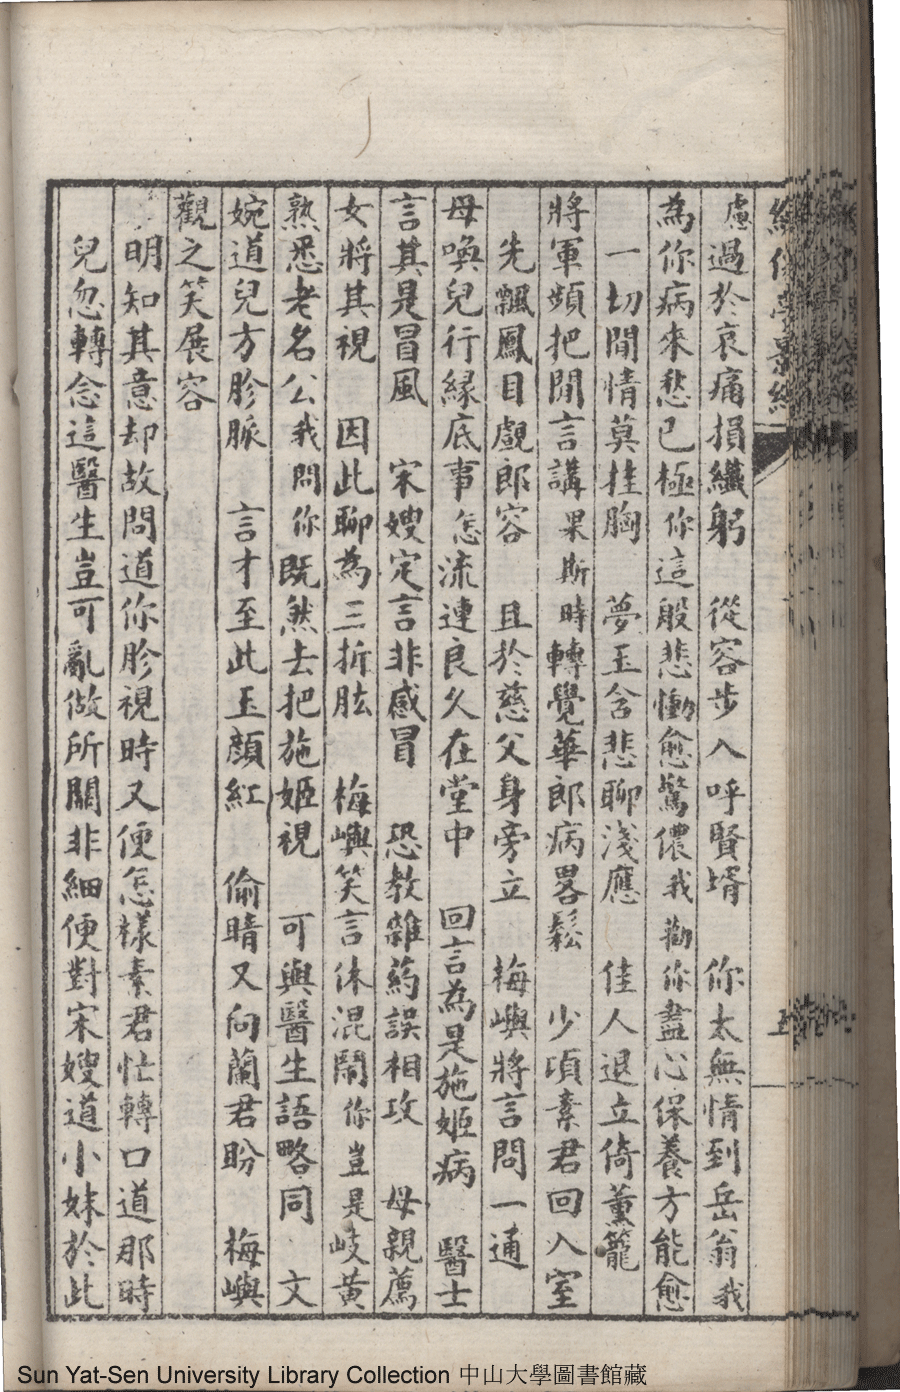 慮過於哀痛損纖躬　從容步入呼賢壻　你太無情到岳翁我
為你病來愁已極你這般悲慟愈驚儂我勸你盡心保養方能愈
一切閒情莫挂胸　夢玉含悲聊淺應　佳人退立倚薰籠
將軍頻把閒言講果斯時轉覺華郎病畧鬆　少項素君回入室
先飄鳳目覷郎容　且於慈父身旁立　梅嶼將言問一通
母喚兒行緣底事怎流連良久在堂中　回言為是施姬病　醫士
言其是冒風　宋嫂定言非感冒　恐教雜葯誤相攻　母親薦
女將其視　因此聊為三折肱　梅嶼笑言休混鬧你豈是岐黃
熟悉老名公我問你既然去把施姬視　可與醫生語略同　文
婉道兒方胗脈　言才至此玉顏紅　偷睛又向蘭君盼　梅嶼
觀之笑展容
明知其意却故問道你胗視時又便怎樣素君忙轉口道那時
兒忽轉念這醫生豈可亂做所關非細便對宋嫂道小妹於此
Sun Yat-Sen University Library Collection 中山大學圖書館藏